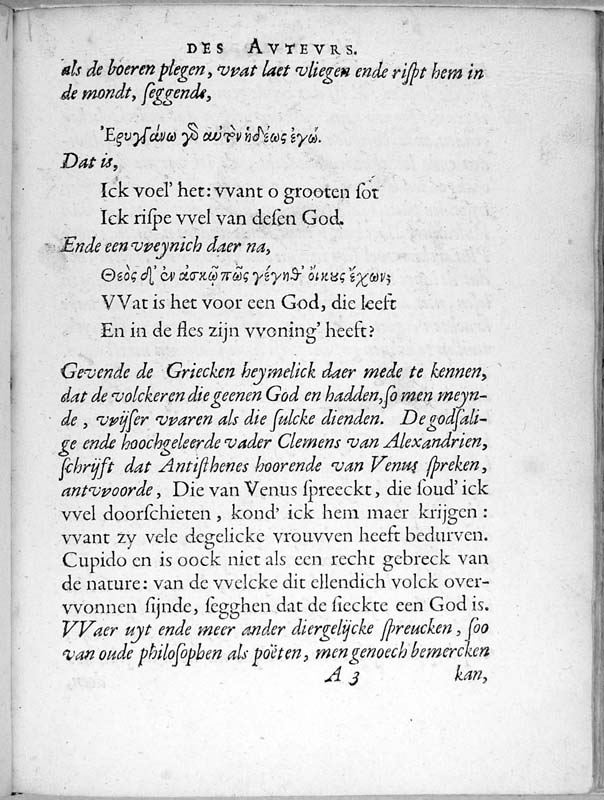 DES AVTEVRS.
als de boeren plegen, vvat laet vliegen ende riſpt hem in
de mondt, ſeggende,
Ἐρυγγάνω γὸ αὐτὸν ἡδέως ἐγώ.
Dat is,
Ick voel' het: vvant o grooten ſot
Ick riſpe vvel van deſen God.
Ende een vveynich daer na,
Θεὸς δ' ἐν ἀσκῷ πῶς γέγηθ' ὄικȣς ἔχων;
VVat is het voor een God, die leeft
En in de fles zijn vvoning' heeft?
Gevende de Griecken heymelick daer mede te kennen,
dat de volckeren die geenen God en hadden, ſo men meyn-
de, vvijſer vvaren als die ſulcke dienden. De godſali-
ge ende hoochgeleerde vader Clemens van Alexandrien,
ſchrijft dat Antiſthenes hoorende van Venus ſpreken,
antvvoorde, Die van Venus ſpreeckt, die ſoud' ick
vvel doorſchieten, kond' ick hem maer krijgen:
vvant zy vele degelicke vrouvven heeft bedurven.
Cupido en is oock niet als een recht gebreck van
de nature: van de vvelcke dit ellendich volck over-
vvonnen ſijnde, ſegghen dat de ſieckte een God is.
VVaer uyt ende meer ander diergelijcke ſpreucken, ſoo
van oude philoſophen als poëten, men genoech bemercken
A 3 kan,